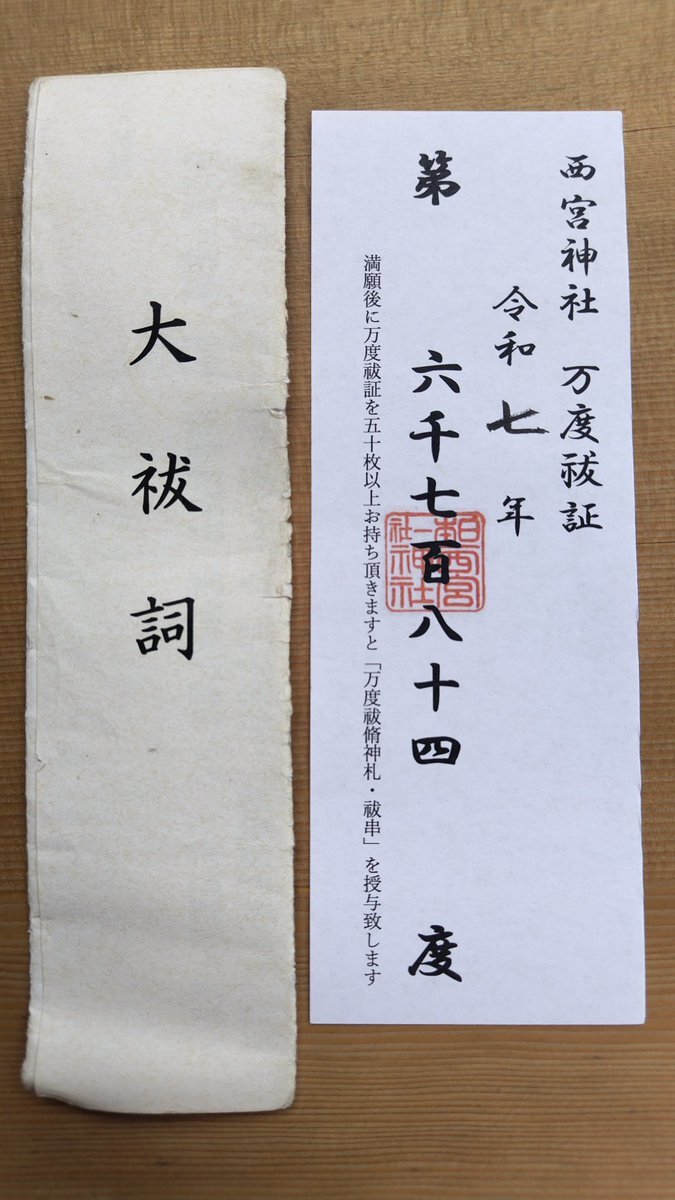 大祓詞
西宮神社 万度祓証
令和七年
第 六千七百八十四 度
満願後に万度祓証を五十枚以上お持ち頂きますと「万度祓脩神札・祓串」を授与致します